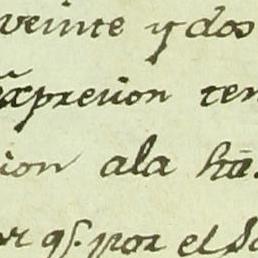 veinte y dos
expresion ten
ion ala hã.
qẽ. por el S